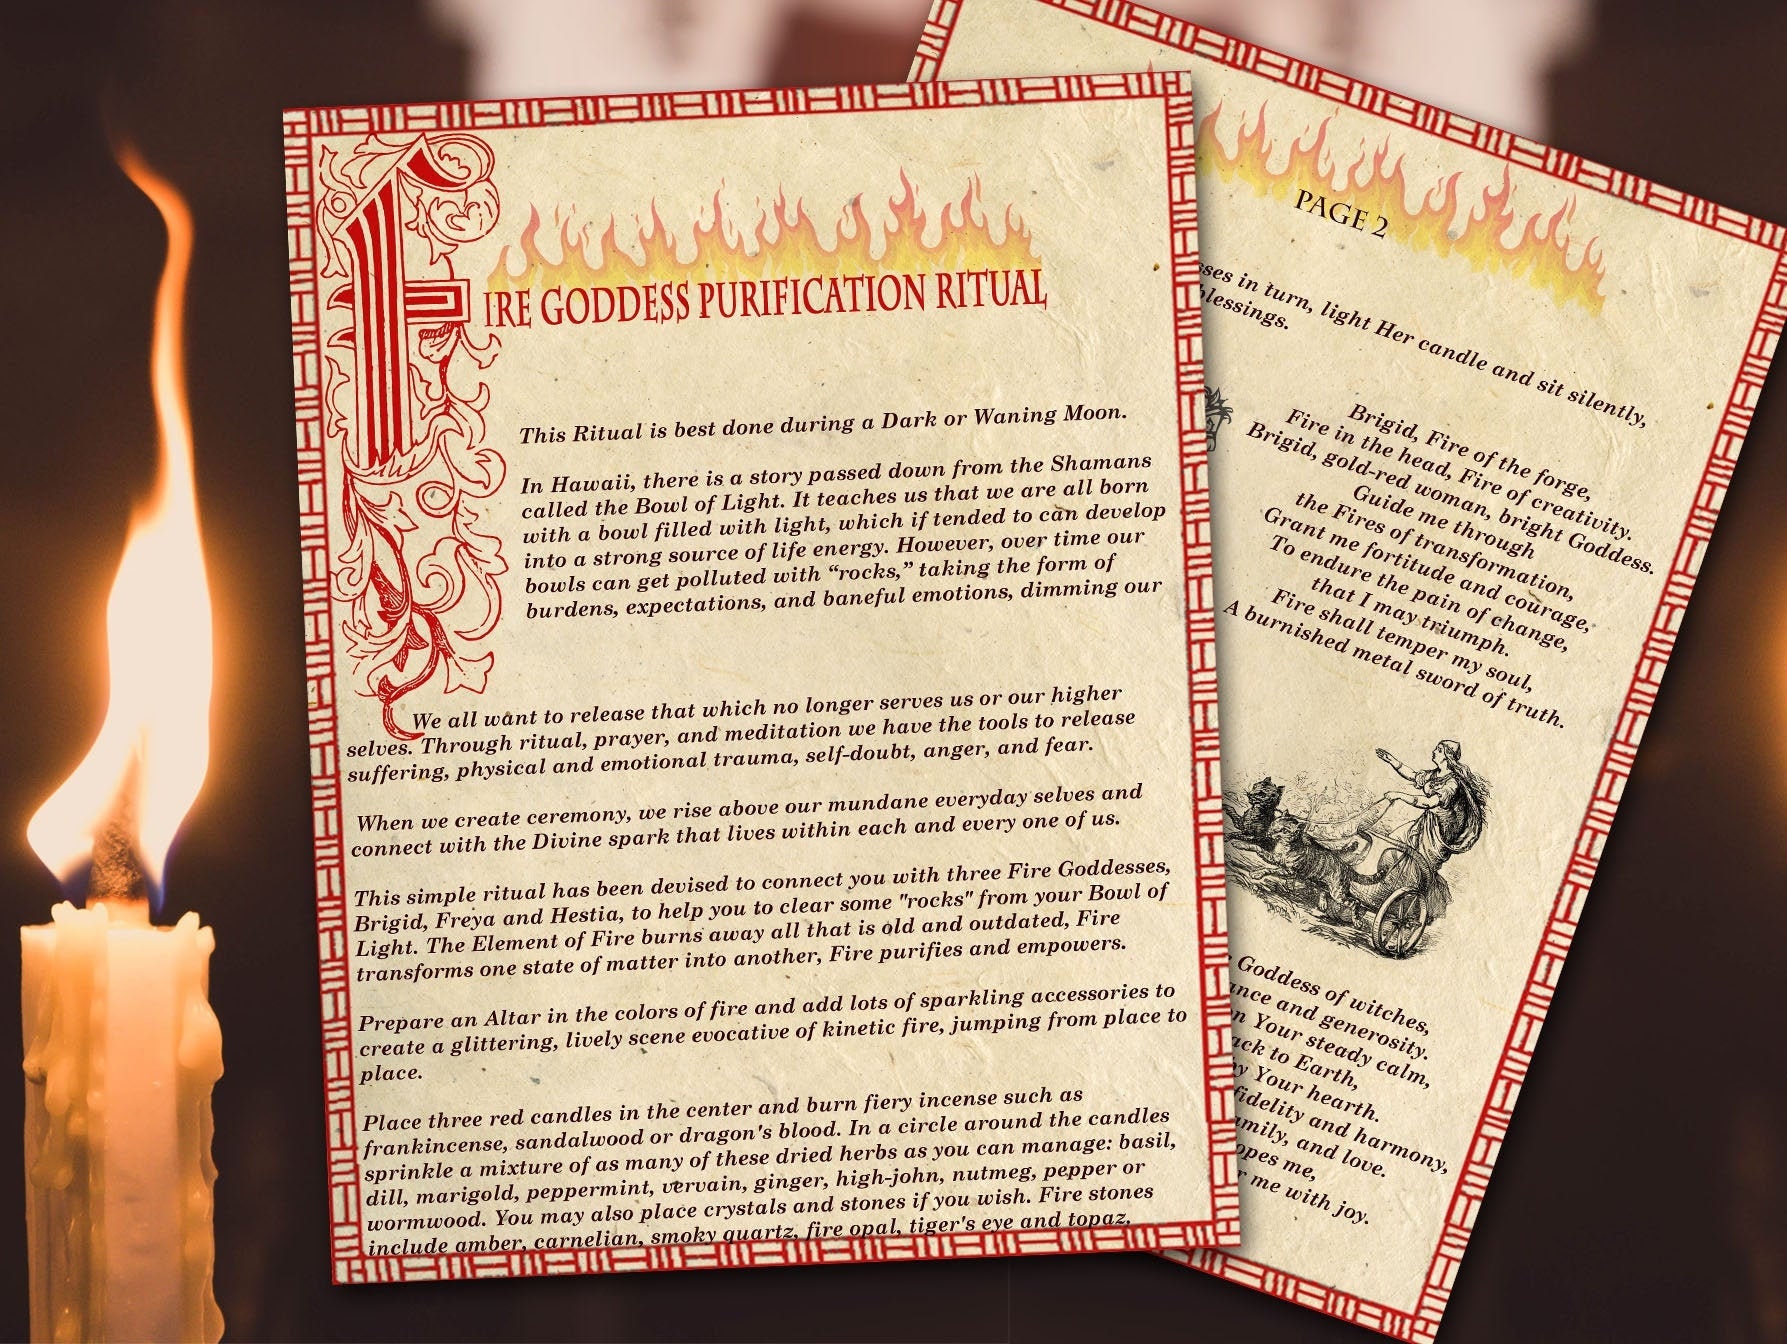 FIRE GODDESS PURIFICATION RITUAL
This Ritual is best done during a Dark or Waning Moon.
In Hawaii, there is a story passed down from the Shamans
called the Bowl of Light. It teaches us that we are all born
with a bowl filled with light, which if tended to can develop
into a strong source of life energy. However, over time our
bowls can get polluted with “rocks,” taking the form of
burdens, expectations, and baneful emotions, dimming our
We all want to release that which no longer serves us or our higher
selves. Through ritual, prayer, and meditation we have the tools to release
suffering, physical and emotional trauma, self-doubt, anger, and fear.
When we create ceremony, we rise above our mundane everyday selves and
connect with the Divine spark that lives within each and every one of us.
This simple ritual has been devised to connect you with three Fire Goddesses,
Brigid, Freya and Hestia, to help you to clear some "rocks" from your Bowl of
Light. The Element of Fire burns away all that is old and outdated, Fire
transforms one state of matter into another, Fire purifies and empowers.
Prepare an Altar in the colors of fire and add lots of sparkling accessories to
create a glittering, lively scene evocative of kinetic fire, jumping from place to
place.
Place three red candles in the center and burn fiery incense such as
frankincense, sandalwood or dragon's blood. In a circle around the candles
sprinkle a mixture of as many of these dried herbs as you can manage: basil,
dill, marigold, peppermint, vervain, ginger, high-john, nutmeg, pepper or
wormwood. You may also place crystals and stones if you wish. Fire stones
include amber, carnelian, smoky quartz, fire opal, tiger's eye and topaz.
PAGE 2
in turn, light Her candle and sit silently,
blessings.
Brigid, Fire of the forge,
Fire in the head, Fire of creativity.
Brigid, gold-red woman, bright Goddess.
Guide me through
the Fires of transformation,
Grant me fortitude and courage,
To endure the pain of change,
that I may triumph.
Fire shall temper my soul,
A burnished metal sword of truth.
Goddess of witches,
and generosity.
Your steady calm,
to Earth,
Your hearth.
fidelity and harmony,
and love.
me,
me with joy.